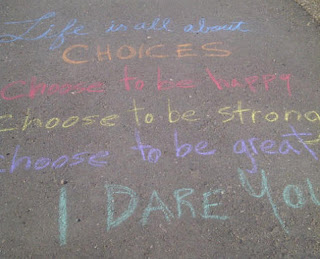 Life is all about
CHOICES
choose to be happy
choose to be strong
choose to be great
I DARE YOU